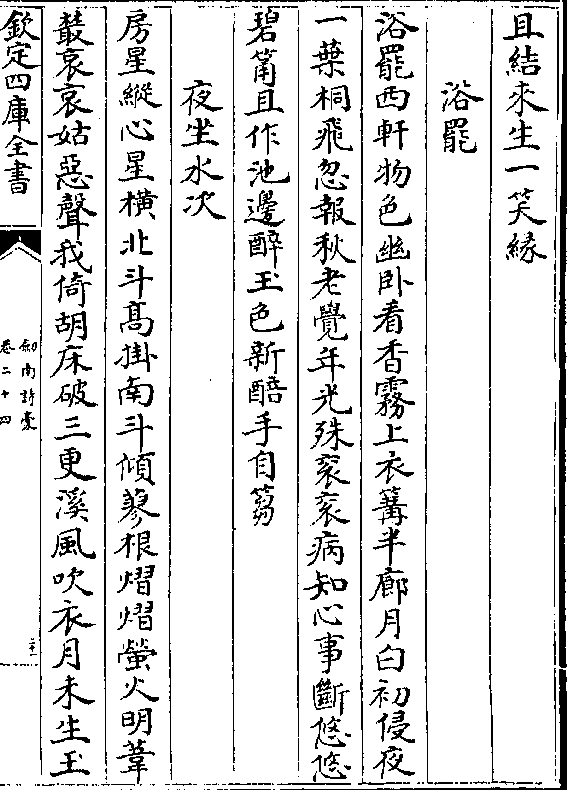 且結來生一笑緣
浴罷
浴罷西軒物色幽卧看香霧上衣篝半廊月白初侵夜
一葉桐飛忽報秋老覺年光殊衮衮病知心事斷悠悠
碧筩且作池邊醉玉色新醅手自篘
夜坐水次
房星縱心星横北斗髙掛南斗傾蓼根熠熠螢火明葦
叢哀哀姑惡聲我倚胡床破三更溪風吹衣月未生玉
欽定四庫全書
劒南詩稾
卷二十四